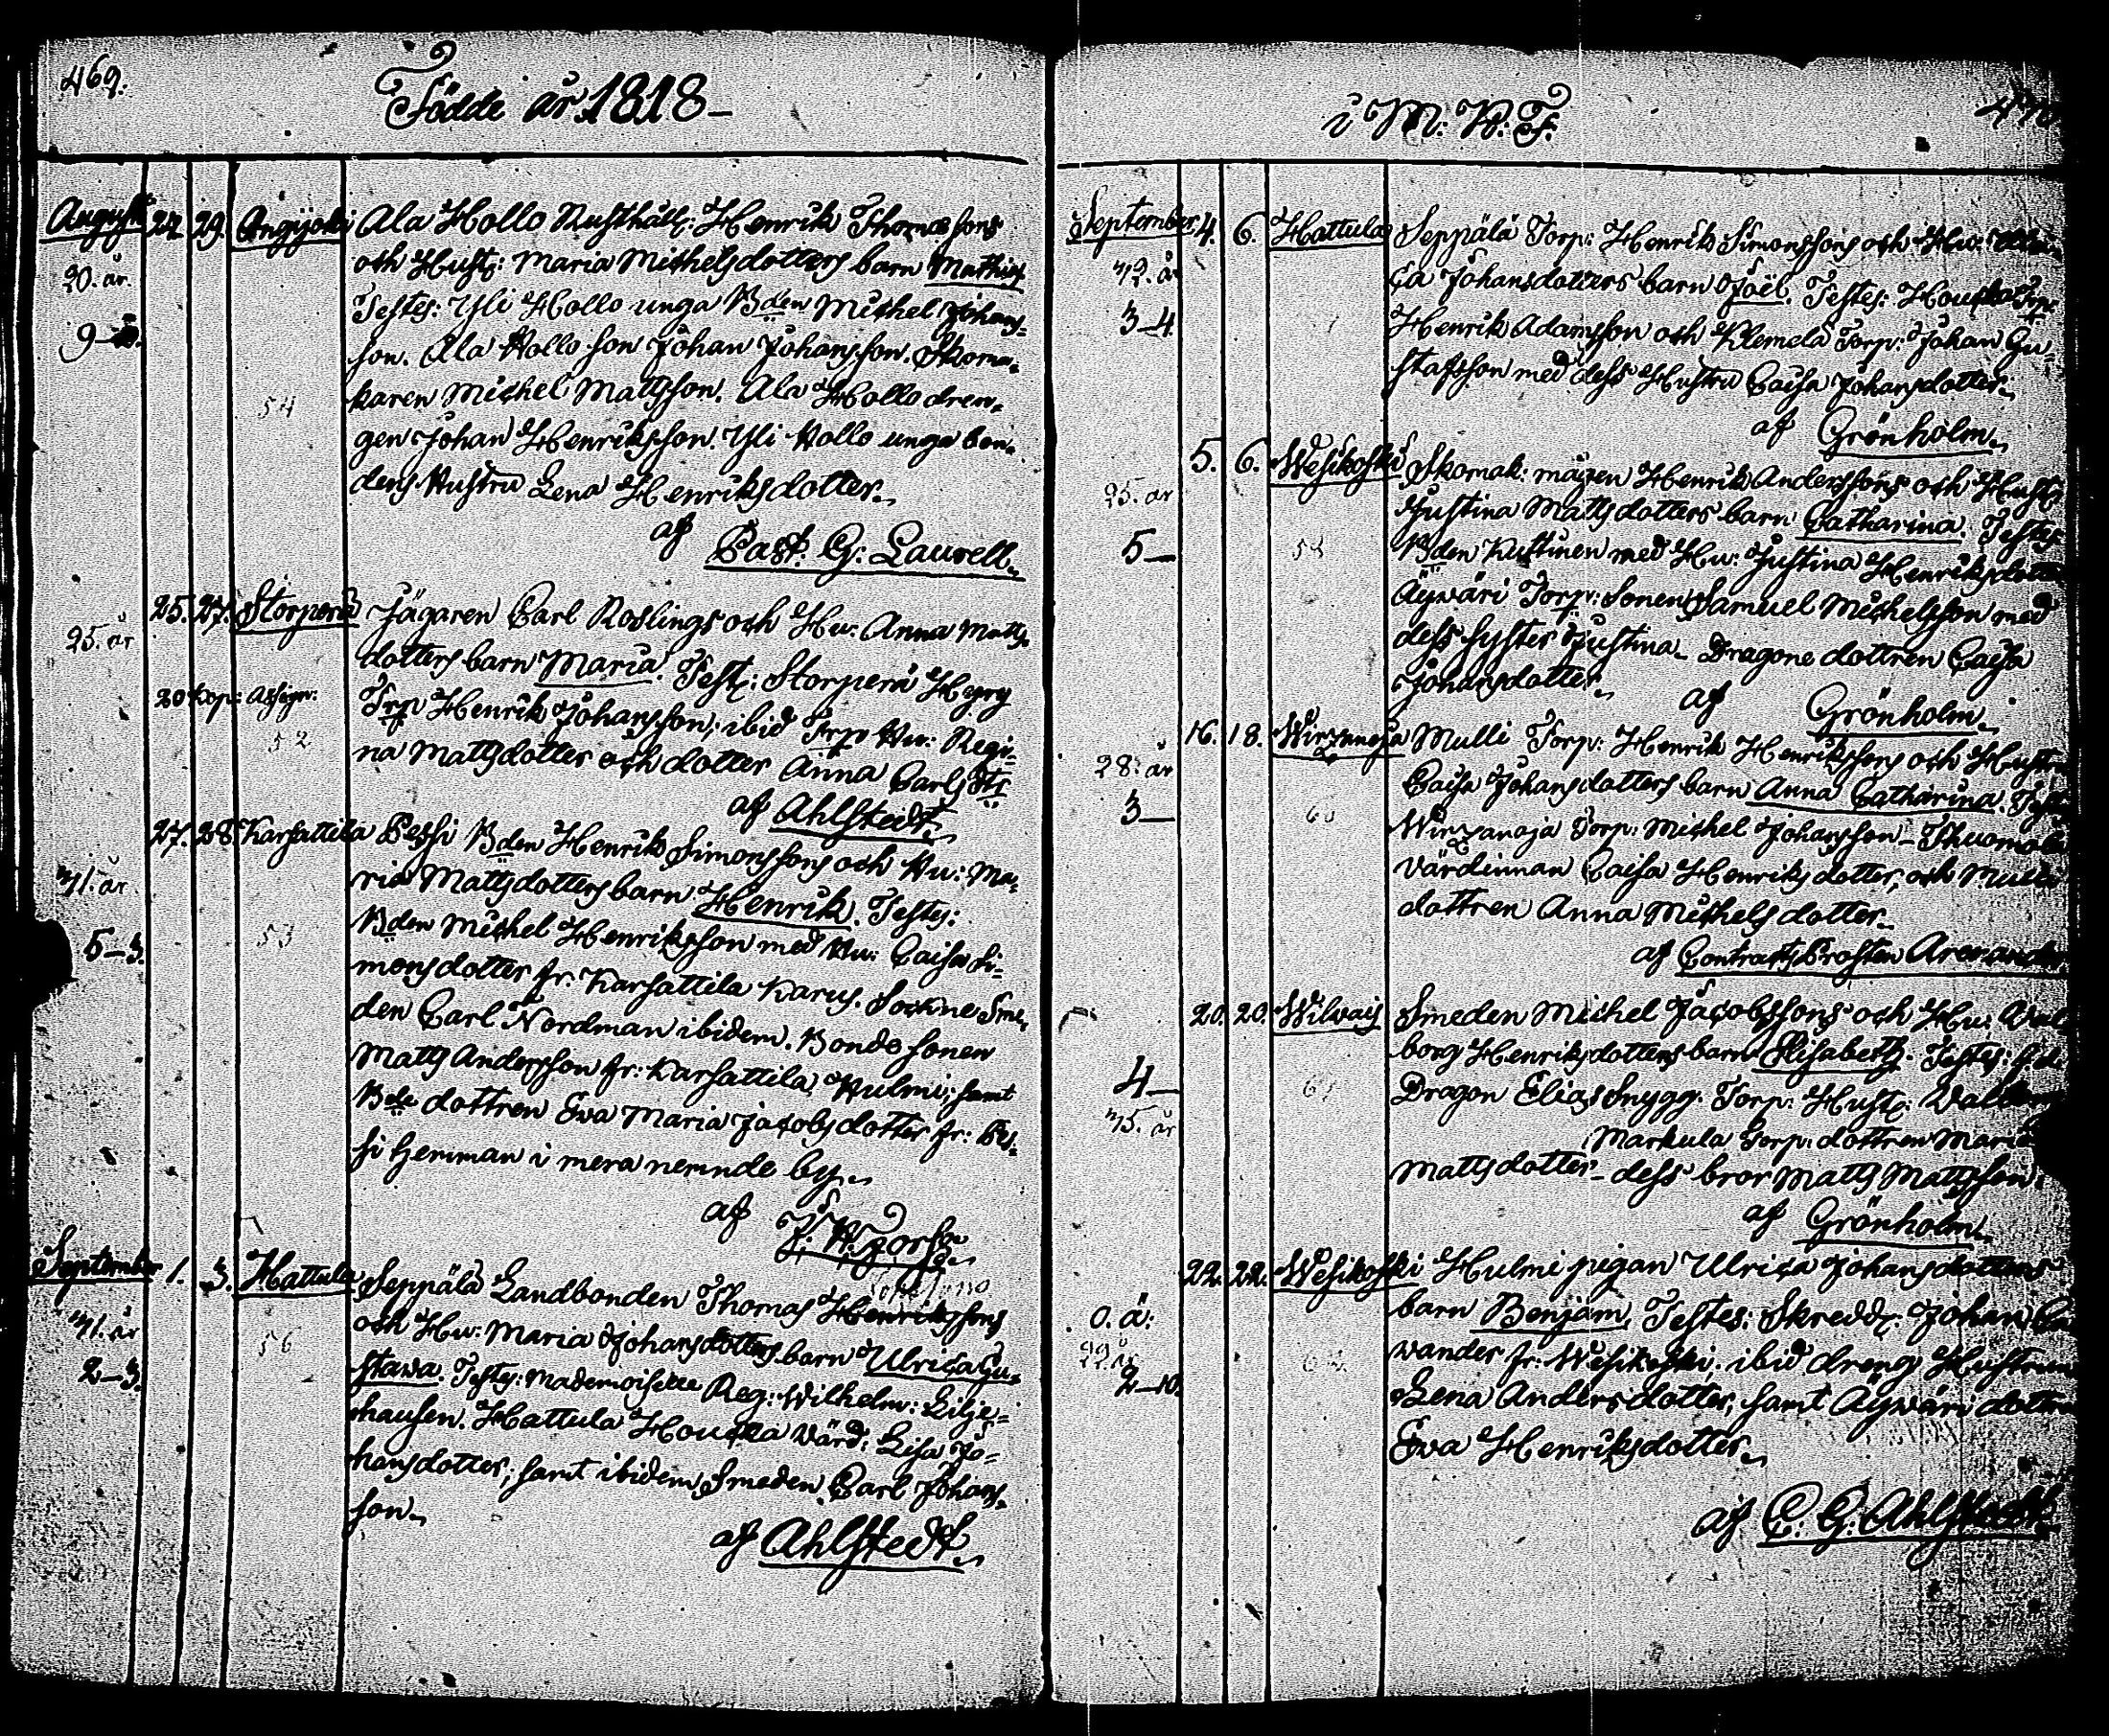 469.
Födde år 1818 –
August 27 29. Angijoki Ala Hollo Rusthåll: Henrik Thomæsons
20. år. och Hust: Maria Michelsdotters barn Mathias
Testes: Yli Hollo unga Bden Michel Johans-
son. Ala Hollo son Johan Johansson. Skoma-
karen Michel Mattsson. Ala Hollo dren-
54
gen Johan Henriksson. Yli Hollo unga bon-
dens Hustru Lena Henriksdotter.
af Past. G: Laurell.
25. 27. Storperä Jägaren Carl Roslings och Hu: Anna Matts
25. år dotters barn Maria. Test: Storperä
20 Kop: Assign: Trp Henrik Johansson; ibid Trp Hu: Regi-
52
na Mattsdotter och dotter Anna Carls
af Ahlstedt.
27. 28. Karsattila Pessi Bden Henrik Simonssons och Hu: Ma-
41. år ria Mattsdotters barn Henrik. Testes:
53
5–3. Bden Michel Henriksson med Hu: Caisa Si-
monsdotter fr: Karsattila Karus. Sockne Sme-
den Carl Nordman ibidem. Bonde sonen
Matts Andersson fr: Karsattila Hulmi; samt
Bde dottren Eva Maria Jacobsdotter fr: Pes-
si hemman i mera nemnde by.
af
September 1. 3. Hattula Seppälä Landbonden Thomas Henrikssons
41. år och Hu: Maria Johansdotters barn Ulrica Gu-
56
2–3. stava. Testes: Mademoiselle Reg: Wilhelm: Lilje-
hausen. Hattula Houcka Värd: Lisa Jo-
hansdotter; samt ibidem Smeden Carl Johans-
son.
af Ahlstedt.
i M: K: F.
September 4. 6. Hattula Seppälä Torp: Henrik Simonssons och Hu:
42. år ca Johansdotters barn Joël. Testes: Houcka Trp
3–4 Henrik Adamsson och Klemelä Torp: Johan Gu-
stafsson med dess Hustru Caisa Johansdotter.
af Grönholm.
5. 6. Wesikoski Skomak: mågen Henrik Anderssons och Hust:
25. år Justina Mattsdotters barn Catharina. Testes
5– Bden Kustinen med Hu: Justina Henriksdotter
Äyväri Torp: Sonen Samuel Michelsson med
dess syster Justina – Dragone dottren Caisa
Johansdotter. af Grönholm.
16. 18. Wirzanoja Mulli Torp: Henrik Henrikssons och Hustru
28. år Caisa Johansdotters barn Anna Catharina.
3– Wirzanoja Torp: Michel Johansson –
värdinnan Caisa Henriksdotter, och
dottren Anna Michelsdotter.
af Contracts Prosten
20. 20. Wilvais Smeden Michel Jacobssons och Hu: Wal
borg Henriksdotters barn Elisabeth. Testes:
4– Dragon Elias Snygg. Torp: Hust:
45. år Markula Torp: dottren Maria
Mattsdotter – dess bror Matts Mattsson.
af Grönholm.
22. 22. Wesikoski Hulmi pigan Ulrica Johansdotters
0. ä: barn Benjam. Testes: Skredd: Johan
22 år wander fr: Wesikoski; ibid dreng Hustrun
2–10. Lena Andersdotter, samt Äyväri dottren
Eva Henriksdotter.
af C: G: Ahlstedt.